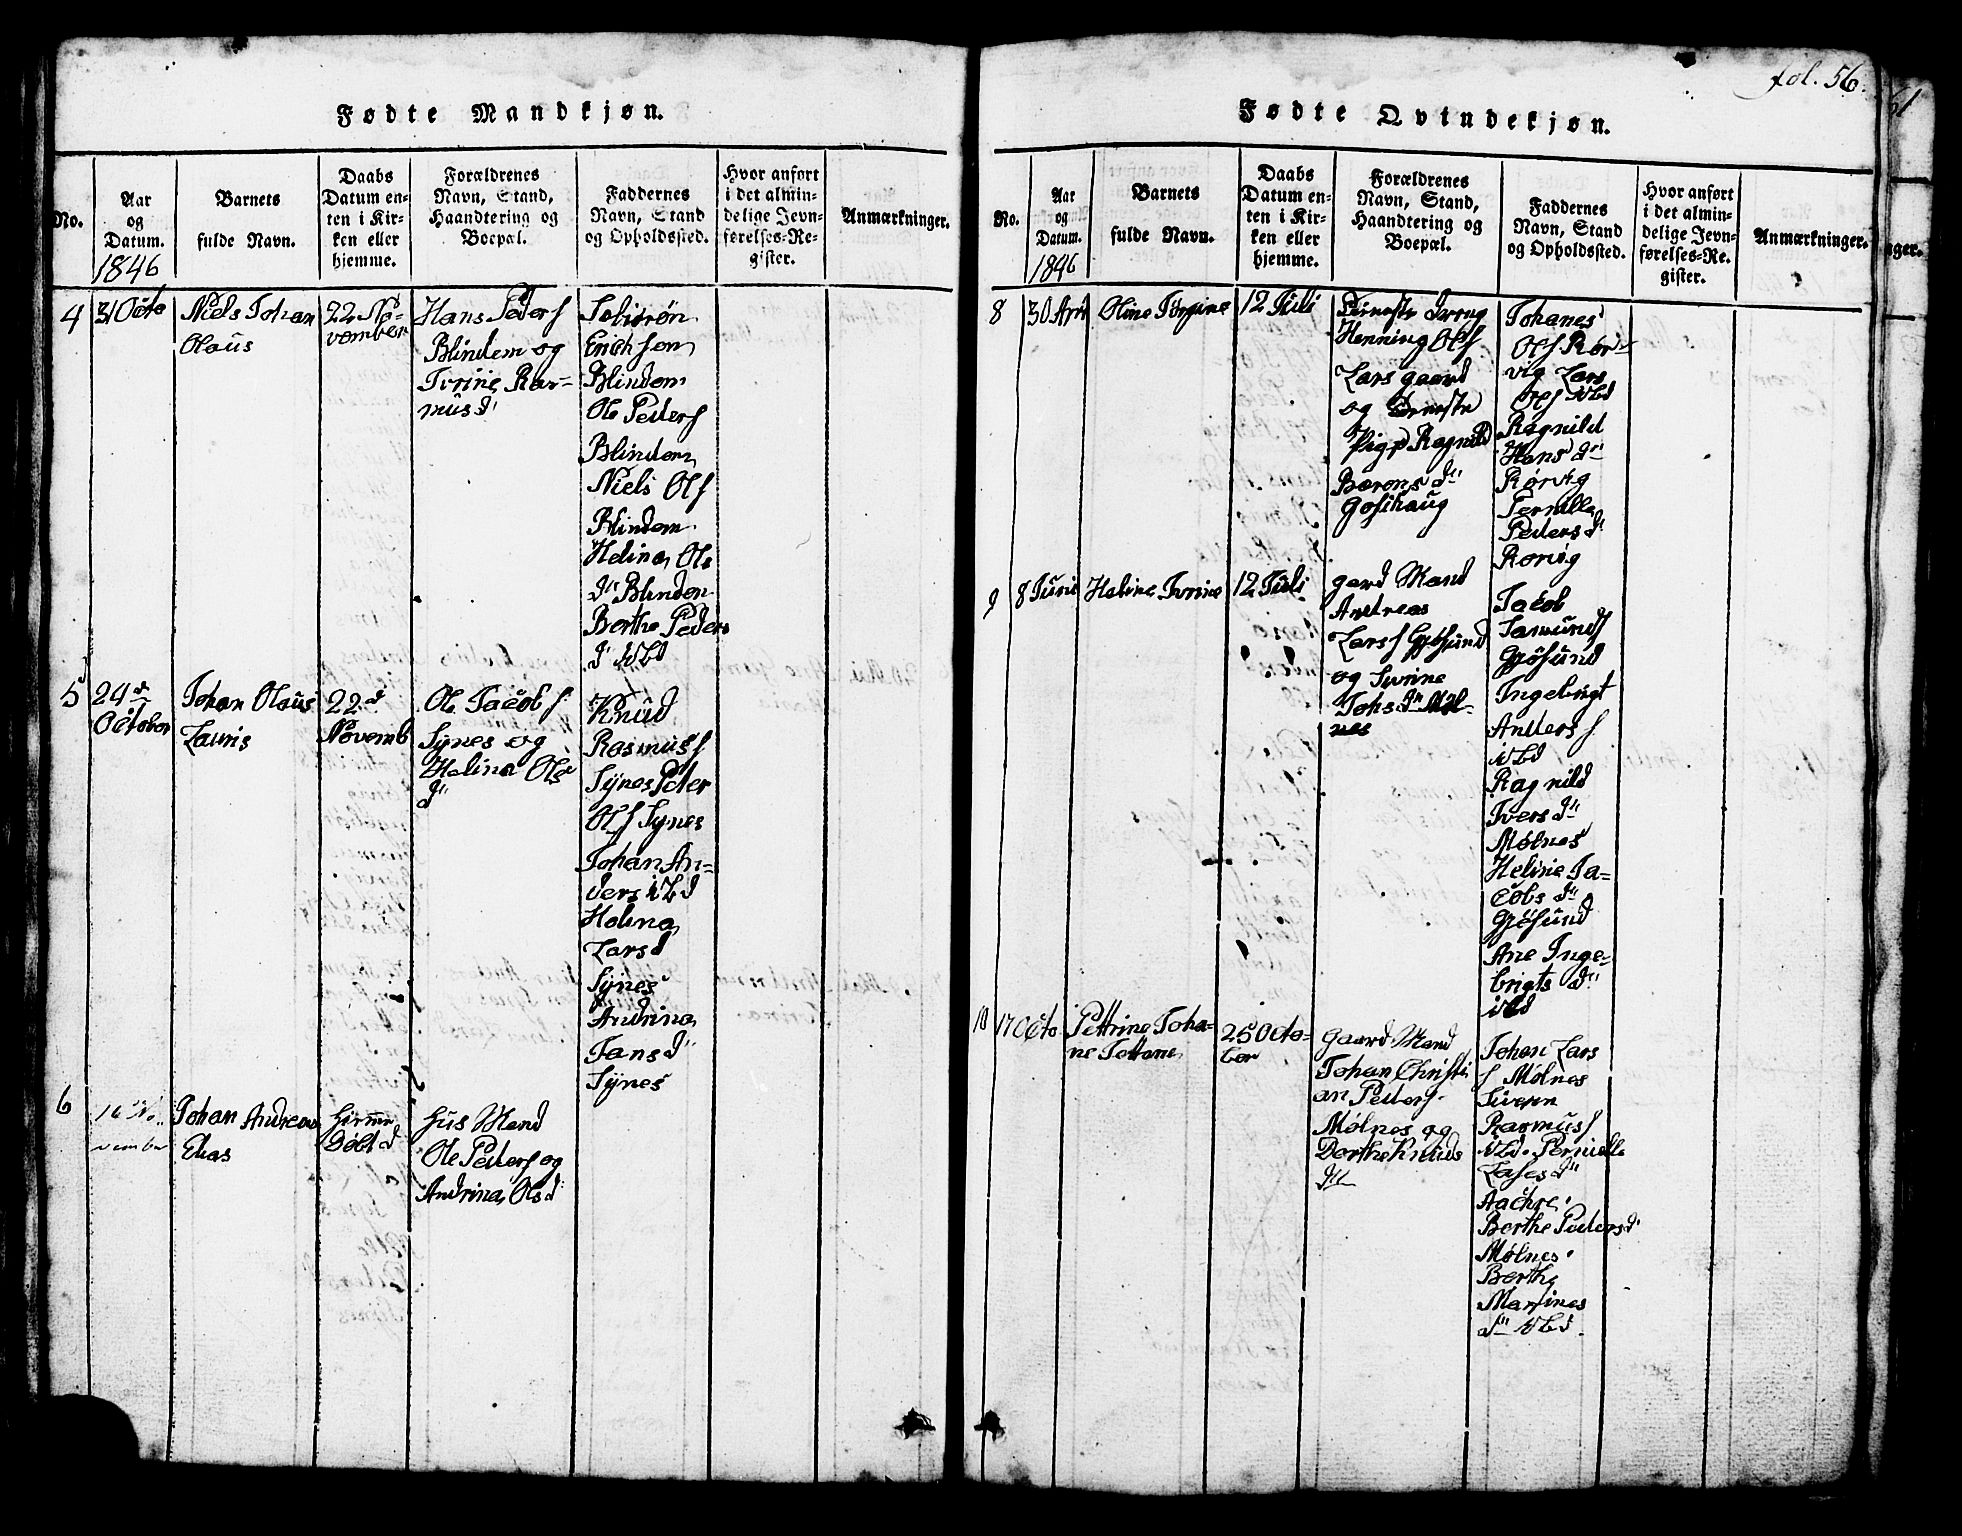 fol. 56.
61
Fødte Mandkjøn.
No.
Aar
og
Datum.
1846
Barnets
fulde Navn.
Daabs
Datum en-
ten i Kir-
ken eller
hjemme.
Forældrenes
Navn, Stand,
Haandtering og
Boepæl.
Faddernes
Navn, Stand
og Opholdssted.
Hvor anført
i det almin-
delige Jevn-
førelses-Re-
gister.
Anmærkninger.
4
31 Octo
Niels Johan
Olaus
22 No-
vember
Hans Peders
Blindem og
Ivrine Ras-
musd
Erichsen
Blindem
Ole Peders
Blindem
Niels Ols
Blindem
Helina Ols
d Blindem
Berthe Peders
d ibd
5
24d
October
Johan Olaus
Lauris
22d
Novemb
Ole Jacobs
Synes og
Helina Ols
d
Knud
Rasmuss
Synes Peter
Ols Synes
Johan An-
ders ibd
Helina
Larsd
Synes
Andrina
Jansd
Synes
6
16 No-
vember
Johan Andreas
Elias
hiemme
Døbt
Hus Mand
Ole Peders og
Andrina Olsd
Fødte Qvindekjøn.
No.
Aar
og
Datum.
1846
Barnets
fulde Navn.
Daabs
Datum en-
ten i Kir-
ken eller
hjemme.
Forældrenes
Navn, Stand,
Haandtering og
Boepæl.
Faddernes
Navn, Stand
og Opholdssted.
Hvor anført
i det almin-
delige Jevn-
førelses-Re-
gister.
Anmærkninger.
nger.
8
30 Apri
Oline Jørgine
12 Juli
Henning Ols
Lars gaard
og
Pige Ragnild
d
Johanes
Ols Rør-
vig Lars
Ols ibd
Ragnild
Hans d
Rørvig
Pernille
Peders d
Rørvig
9
8 Juni
Heline Ivrine
12 Juli
gard Mand
Andreas
Larss Gjøsund
og Ivrine
Johs d Møl-
nes
Jacob
Gjøsund
Ingebrigt
Anders
ibd
Ragnild
Ivers d
Mølnes
Heline Ja-
cobs d
Gjøsund
Ane Inge-
brigts d
ibd
10
17 Octo
Pettrine Joha-
ne
25 Octo-
ber
Gaard Mand
Johan Christi
an Peders
Mølnes og
Dorthe Knuds
d
Johan Lars
s Mølnes
Rasmuss
ibd. Pernille
d
Berthe Pedersd
Mølnes.
Berthe
Martines
d ibd